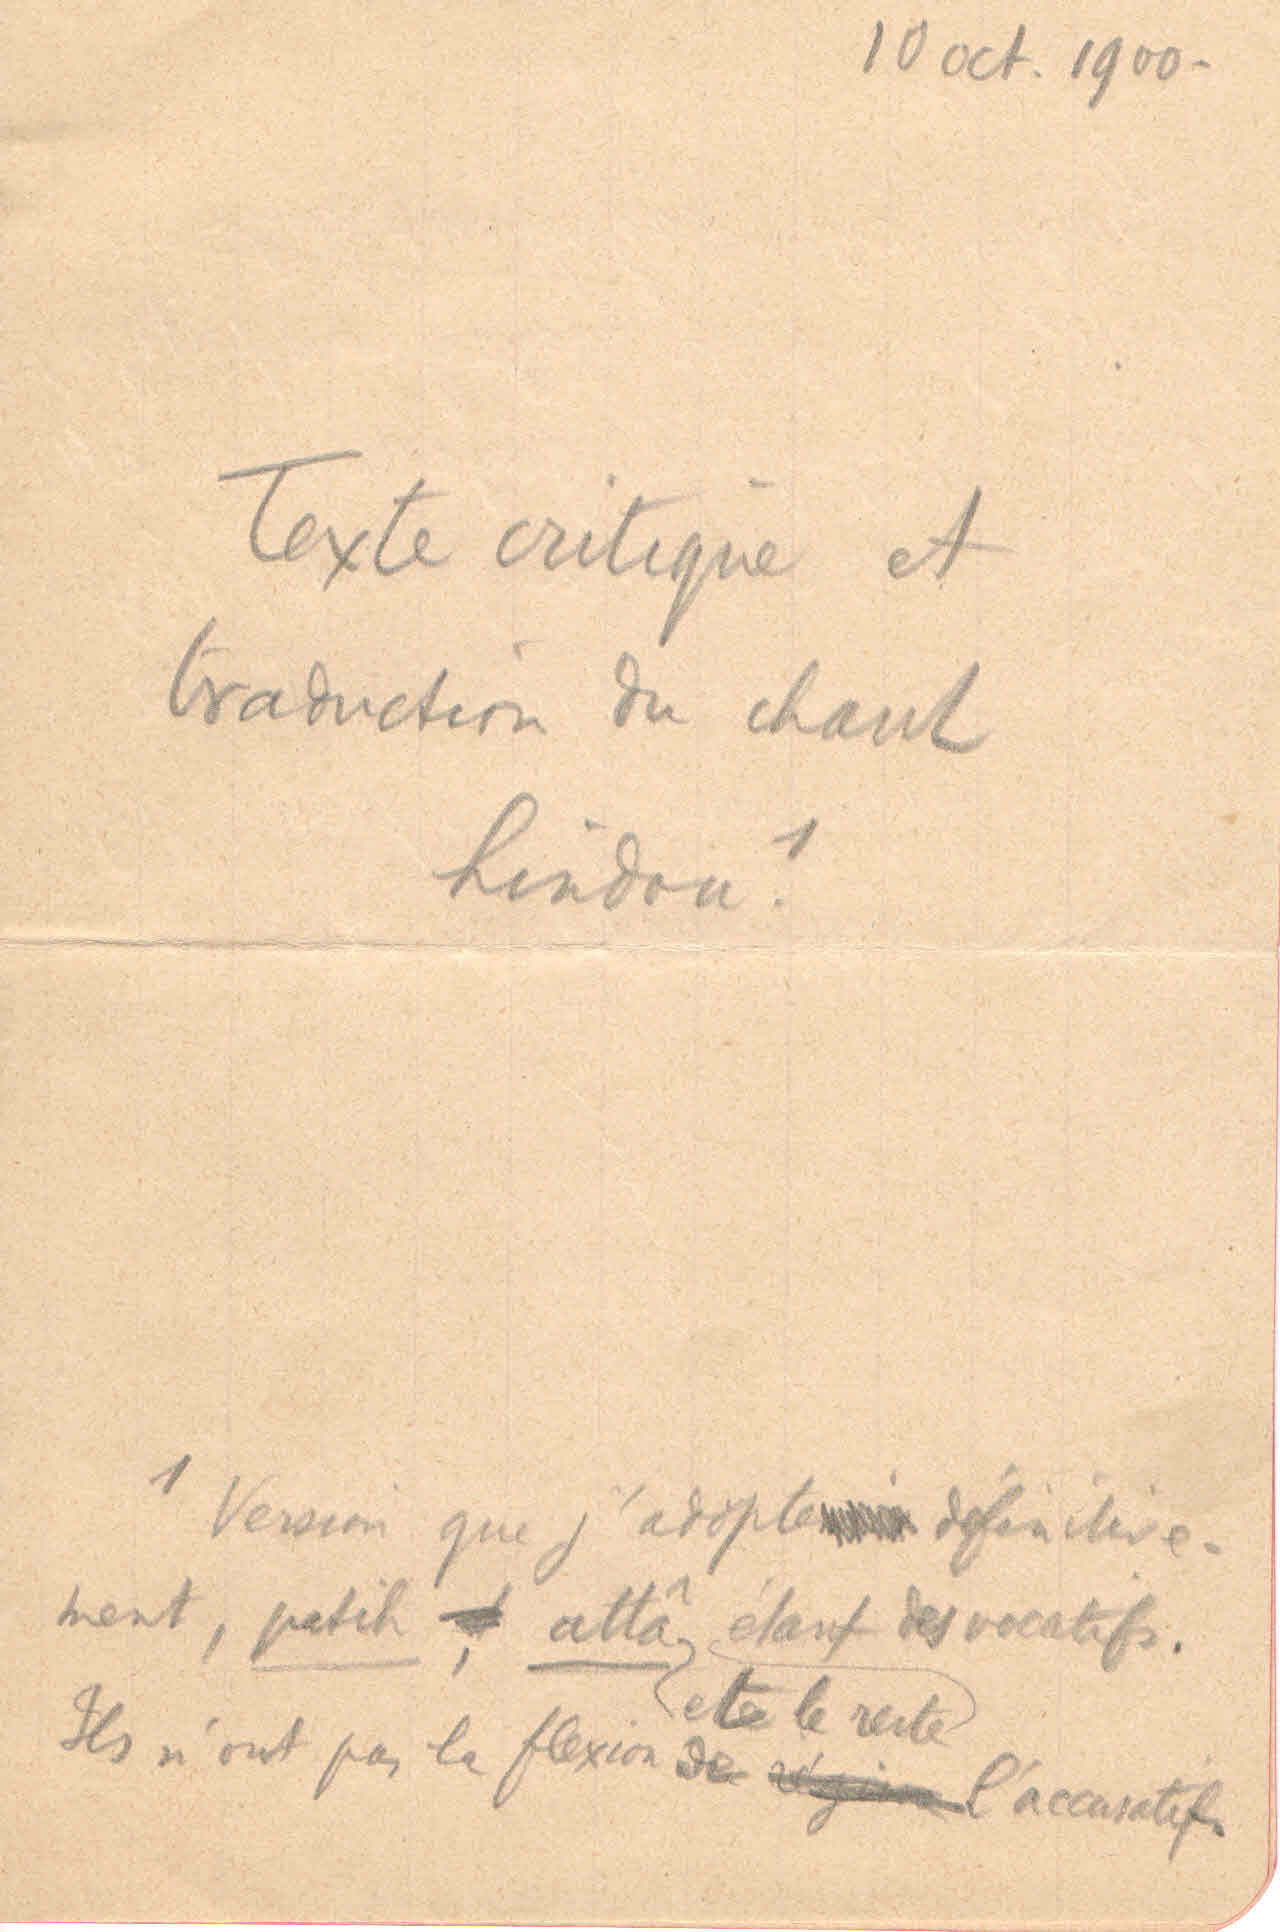 10 oct. 1900-
Texte critique et
traduction du chant
hindou.¹
¹ Version que j'adopte définitive-
ment, patih, attâ, étant des vocatifs.
et le reste
Ils n'ont pas la flexion de l'accusatif.